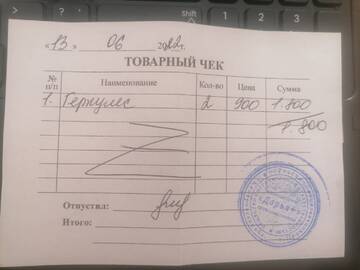 « 13 » 06 2022г.
ТОВАРНЫЙ ЧЕК
№ п/п Наименование Кол-во Цена Сумма
1. Геркулес 2 900 1.800
1.800
Отпустил:
Итого:
Shift